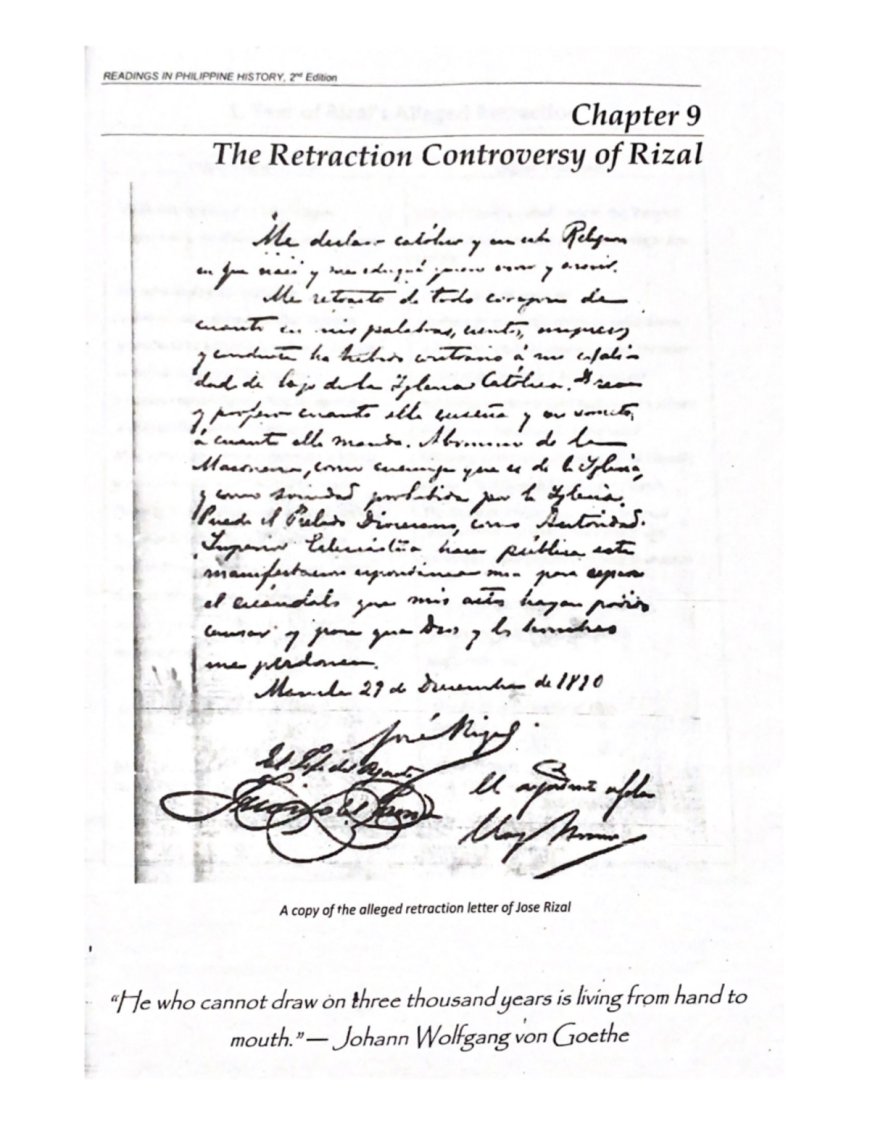 READINGS IN PHILIPPINE HISTORY, 2nd Edition
Chapter 9
The Retraction Controversy of Rizal
Me declaro católico y en esta Religion
en que nací y me eduqué quiero vivir y morir.
Me retracto de todo corazon de
cuanto en mis palabras, escritos, impresos
y conducta ha habido contrario á mi calidad
dad de hijo de la Iglesia Católica. Creo
y profeso cuanto ella enseña y me someto
á cuanto ella manda. Abomino de la
Masoneria, como enemiga que es de la Iglesia,
y como sociedad prohibida por la Iglesia.
Puede el Prelado Diocesano, como Autoridad
Superior Eclesiástica hacer pública esta
manifestacion espontánea mia para reparar
el escándalo que mis actos hayan podido
causar y para que Dios y los hombres
me perdonen.
Manila 29 de Diciembre de 1890
José Rizal
El Jefe del Piquete
El ayudante de Plaza
A copy of the alleged retraction letter of Jose Rizal
“He who cannot draw on three thousand years is living from hand to
mouth.”— Johann Wolfgang von Goethe